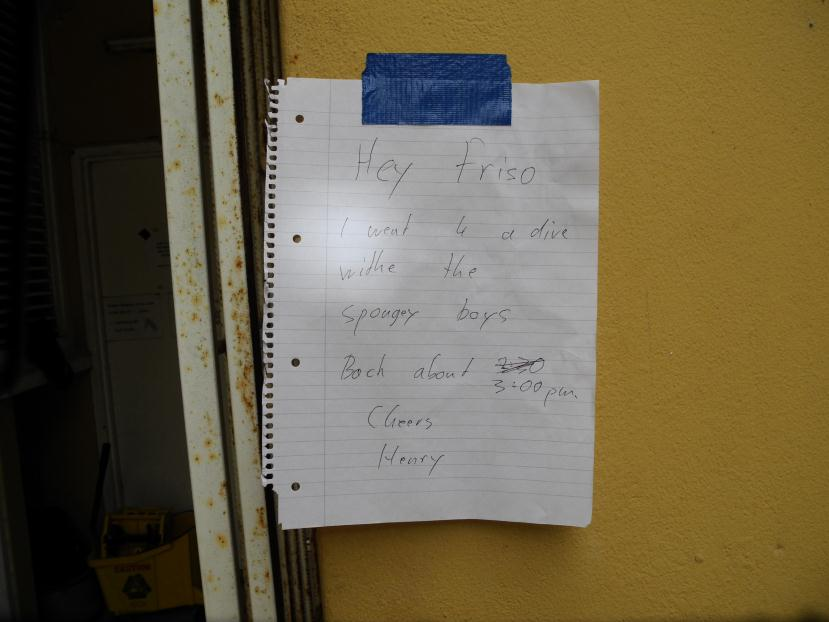 Hey Friso
I went 4 a dive
withe the
spongey boys
Back about
3:00 pm.
Cheers
Henry
CAUTION